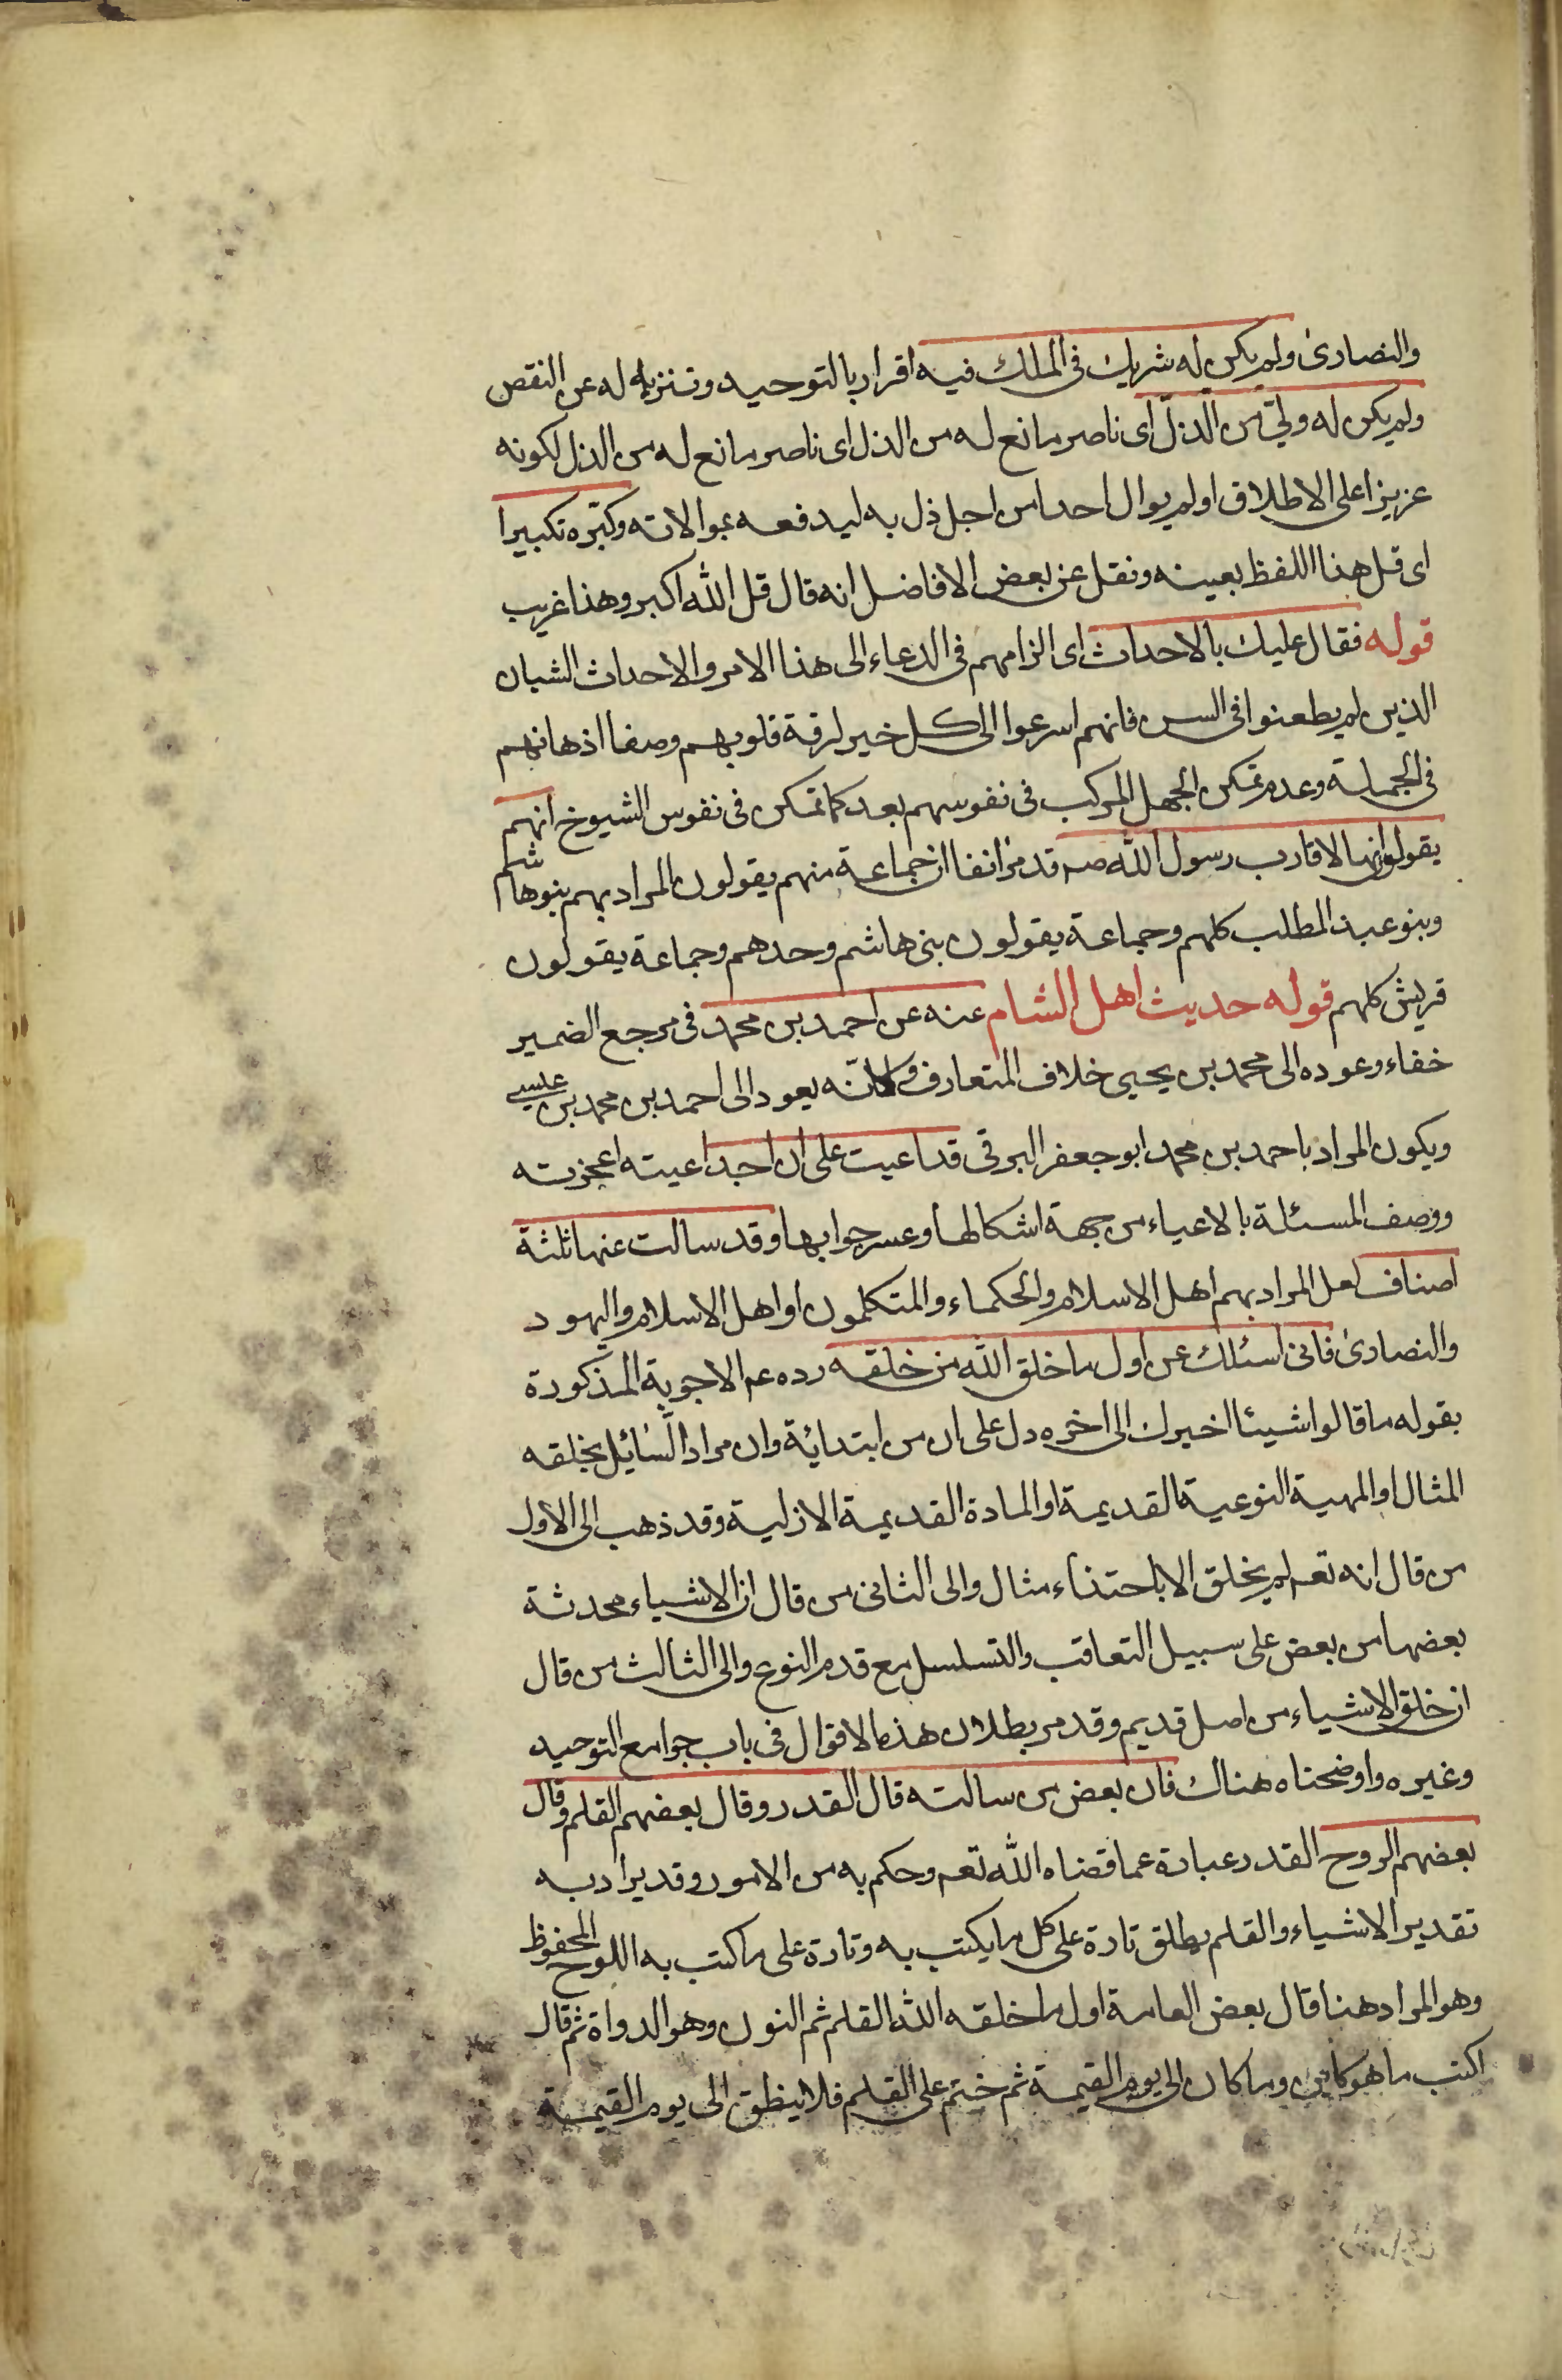 والنصارى ولم يكن له شريك فى الملك فيه اقرار بالتوحيد وتنزيه له عن النقص
ولم يكن له ولىّ من الذلّ اى ناصر مانع له من الذل اى ناصر مانع له من الذل لكونه
عزيزا على الاطلاق او لم يوال احدا من اجل ذل به ليدفعه بموالاته وكبّره تكبيرا
اى قل هذا اللفظ بعينه ونقل عن بعض الافاضل انه قال قل الله اكبر وهذا غريب
قوله فقال عليك بالاحداث اى الزامهم فى الدعاء الى هذا الامر والاحداث الشبان
الذين لم يطعنوا فى السن فانهم اسرعوا الى كل خير لرقة قلوبهم وصفا اذهانهم
فى الجملة وعدم تمكن الجهل المركب فى نفوسهم بعد كما تمكن فى نفوس الشيوخ انهم
يقولو انها لاقارب رسول الله صم قد مرّ انفا ان جماعة منهم يقولون المراد بهم بنو هاشم
وبنو عبد المطلب كلهم وجماعة يقولون بنى هاشم وحدهم وجماعة يقولون
قريش كلهم قوله حديث اهل الشام عنه عن احمد بن محمد فى مرجع الضمير
خفاء وعوده الى محمد بن يحيى خلاف المتعارف وكانّه يعود الى احمد بن محمد بن عيسى
ويكون المراد باحمد بن محمد ابو جعفر البرقى قد اعيت على ان اجد اعيته اعجزته
ووصف المسئلة بالاعياء من جهة اشكالها وعسر جوابها وقد سالت عنها ثلثة
اصناف لعل المراد بهم اهل الاسلام والحكماء والمتكلمون او اهل الاسلام واليهود
والنصارى فانى اسئلك عن اول ما خلق الله من خلقه رده عم الاجوبة المذكورة
بقوله ما قالوا شيئا اخبرك الى اخره دل على ان من ابتدائية وان مراد السّائل بخلقه
المثال او المهية النوعية القديمة او المادة القديمة الازلية وقد ذهب الى الاول
من قال انه تعم لم يخلق الا باحتذاء مثال والى الثانى من قال ان الاشياء محدثة
بعضها من بعض على سبيل التعاقب والتسلسل مع قدم النوع والى الثالث من قال
ان خلق الاشياء من اصل قديم وقد مر بطلان هذه الاقوال فى باب جوامع التوحيد
وغيره واوضحناه هناك فان بعض من سالته قال القدر وقال بعضهم القلم وقال
بعضهم الروح القدر عبارة عما قضاه الله تعم وحكم به من الامور وقد يراد به
تقدير الاشياء والقلم يطلق تارة على كل ما يكتب به وتارة على ما كتب به اللوح المحفوظ
وهو المراد هنا قال بعض العامة اول ما خلقه الله القلم ثم النون وهو الدواة ثم قال
اكتب ما هو كاين وما كان الى يوم القيمة ثم ختم على القلم فلا ينطق الى يوم القيمة